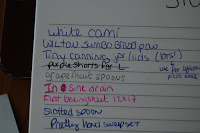 white cami
Wilton Jumbo Bread pan
Tiny canning jar lids (lots!)
purple shorts for L
grapefruit spoons
In sink drain
Flat baking sheet 12x17
slotted spoon
Pretty hand soap set